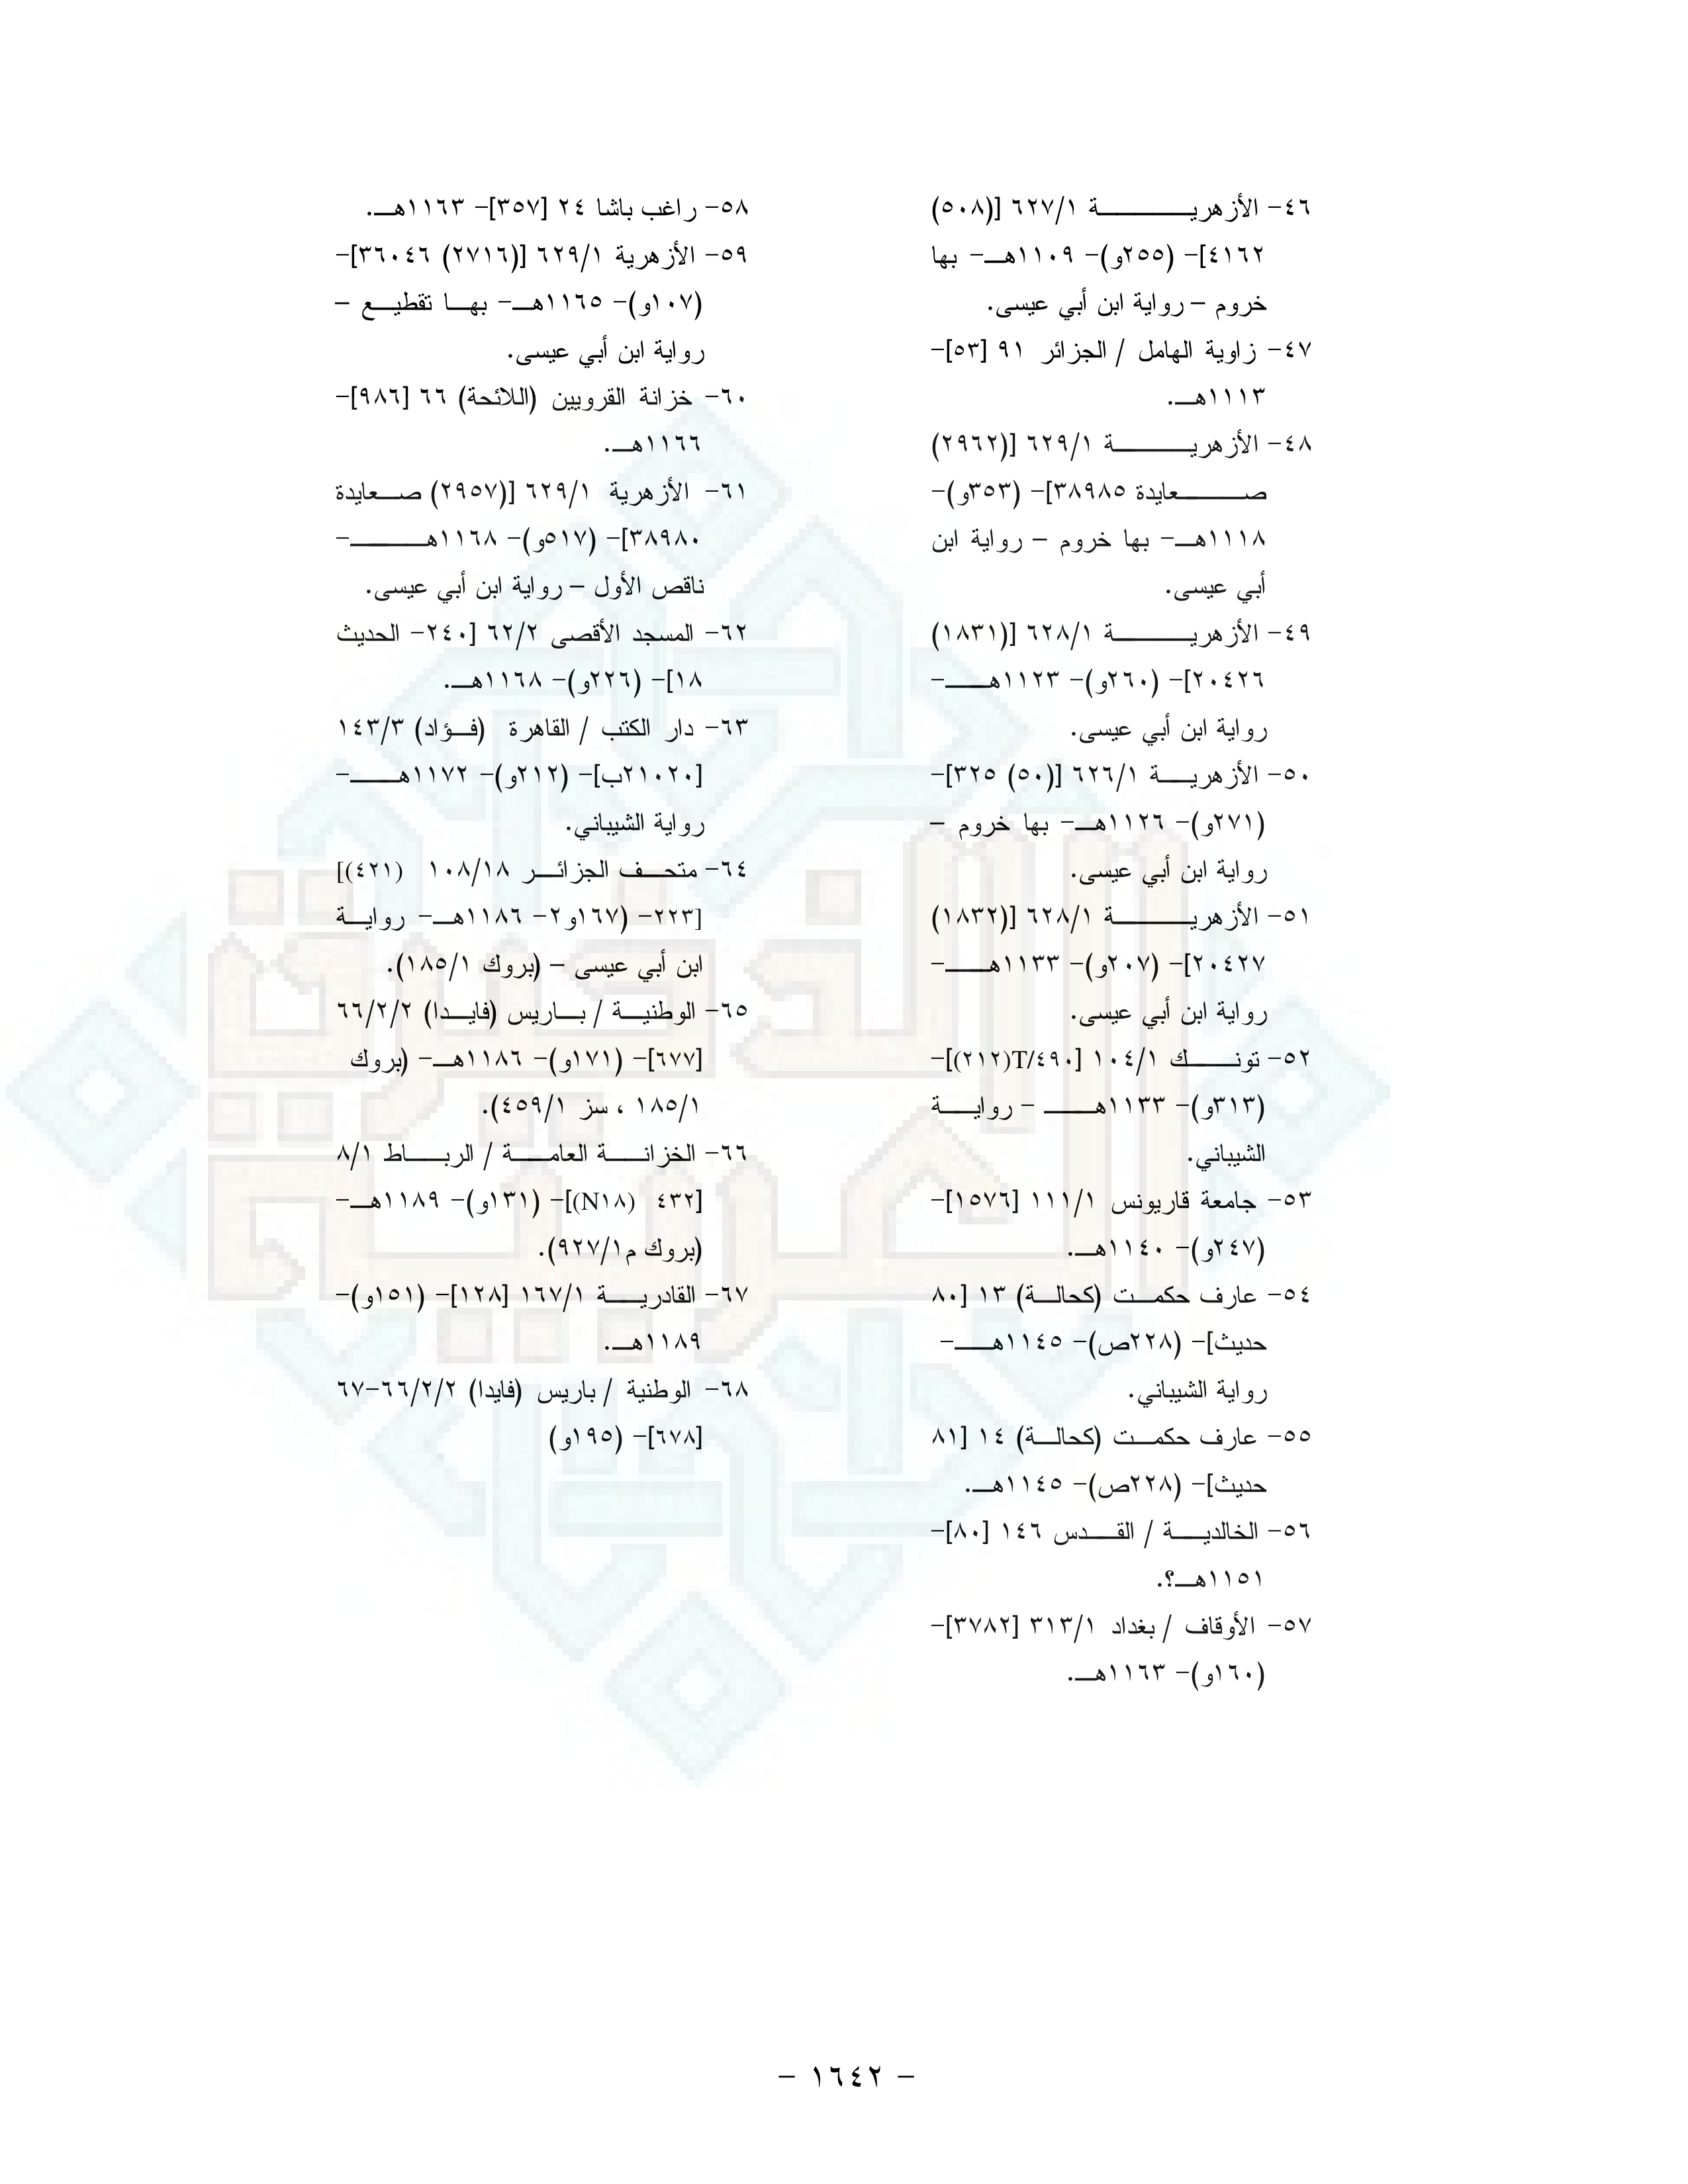 ٤٦- الأزهرية ٦٢٧/١ [(٥٠٨)
٤١٦٢]- (٢٥٥و)- ١١٠٩هـ- بها
خروم – رواية ابن أبي عيسى.
٤٧- زاوية الهامل / الجزائر ٩١ [٥٣]-
١١١٣هـ.
٤٨- الأزهرية ٦٢٩/١ [(٢٩٦٢)
صعايدة ٣٨٩٨٥]- (٣٥٣و)-
١١١٨هـ- بها خروم – رواية ابن
أبي عيسى.
٤٩- الأزهرية ٦٢٨/١ [(١٨٣١)
٢٠٤٢٦]- (٢٦٠و)- ١١٢٣هـ-
رواية ابن أبي عيسى.
٥٠- الأزهرية ٦٢٦/١ [(٥٠) ٣٢٥]-
(٢٧١و)- ١١٢٦هـ- بها خروم –
رواية ابن أبي عيسى.
٥١- الأزهرية ٦٢٨/١ [(١٨٣٢)
٢٠٤٢٧]- (٢٠٧و)- ١١٣٣هـ-
رواية ابن أبي عيسى.
٥٢- تونك ١٠٤/١ [T/٤٩٠(٢١٢)]-
(٣١٣و)- ١١٣٣هـ – رواية
الشيباني.
٥٣- جامعة قاريونس ١١١/١ [١٥٧٦]-
(٢٤٧و)- ١١٤٠هـ.
٥٤- عارف حكمت (كحالة) ١٣ [٨٠
حديث]- (٢٢٨ص)- ١١٤٥هـ-
رواية الشيباني.
٥٥- عارف حكمت (كحالة) ١٤ [٨١
حديث]- (٢٢٨ص)- ١١٤٥هـ.
٥٦- الخالدية / القدس ١٤٦ [٨٠]-
١١٥١هـ؟.
٥٧- الأوقاف / بغداد ٣١٣/١ [٣٧٨٢]-
(١٦٠و)- ١١٦٣هـ.
٥٨- راغب باشا ٢٤ [٣٥٧]- ١١٦٣هـ.
٥٩- الأزهرية ٦٢٩/١ [(٢٧١٦) ٣٦٠٤٦]-
(١٠٧و)- ١١٦٥هـ- بها تقطيع –
رواية ابن أبي عيسى.
٦٠- خزانة القرويين (اللائحة) ٦٦ [٩٨٦]-
١١٦٦هـ.
٦١- الأزهرية ٦٢٩/١ [(٢٩٥٧) صعايدة
٣٨٩٨٠]- (٥١٧و)- ١١٦٨هـ-
ناقص الأول – رواية ابن أبي عيسى.
٦٢- المسجد الأقصى ٦٢/٢ [٢٤٠- الحديث
١٨]- (٢٢٦و)- ١١٦٨هـ.
٦٣- دار الكتب / القاهرة (فؤاد) ١٤٣/٣
[٢١٠٢٠ب]- (٢١٢و)- ١١٧٢هـ-
رواية الشيباني.
٦٤- متحف الجزائر ١٠٨/١٨ (٤٢١)]
[٢٢٣- (١٦٧و٢- ١١٨٦هـ- رواية
ابن أبي عيسى – (بروك ١٨٥/١).
٦٥- الوطنية / باريس (فايدا) ٦٦/٢/٢
[٦٧٧]- (١٧١و)- ١١٨٦هـ- (بروك
١٨٥/١ ، سز ٤٥٩/١).
٦٦- الخزانة العامة / الرباط ٨/١
[٤٣٢ (N١٨)]- (١٣١و)- ١١٨٩هـ-
(بروك م٩٢٧/١).
٦٧- القادرية ١٦٧/١ [١٢٨]- (١٥١و)-
١١٨٩هـ.
٦٨- الوطنية / باريس (فايدا) ٦٦/٢/٢-٦٧
[٦٧٨]- (١٩٥و)
- ١٦٤٢ -